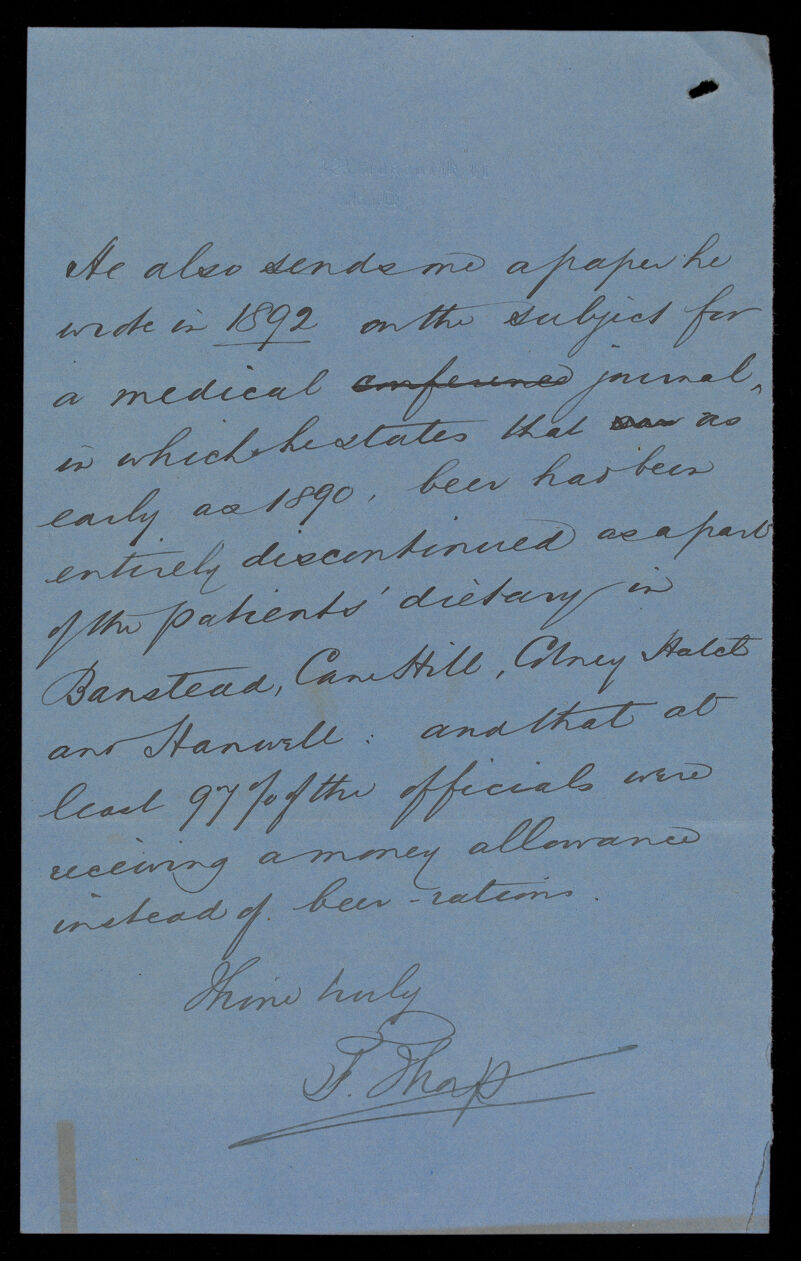 He also sends me a paper he
wrote in 1892 on the subject for
a medical conference journal,
in which he states that as
early as 1890, beer had been
entirely discontinued as a part
of the patients' dietary in
Banstead, Cane Hill, Colney Hatch
and Hanwell: and that at
least 97% of the officials were
receiving a money allowance
instead of beer-rations.
Thine truly
T.